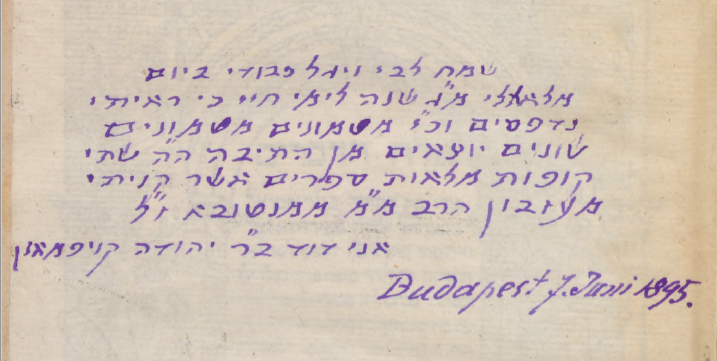 שמח לבי ויגל כבודי ביום
מלאלי מ"ג שנה לימי חיי כי ראיתי
נדפסים וכ"י מטמונים מטמונים
שונים יוצאים מן התיבה ה"ה שתי
קופות מלאות ספרים אשר קניתי
מעזבון הרב מ"מ ממנטובא ז"ל
אני דוד ב"ר יהודה קויפמאן
Budapest 7. Juni 1895.